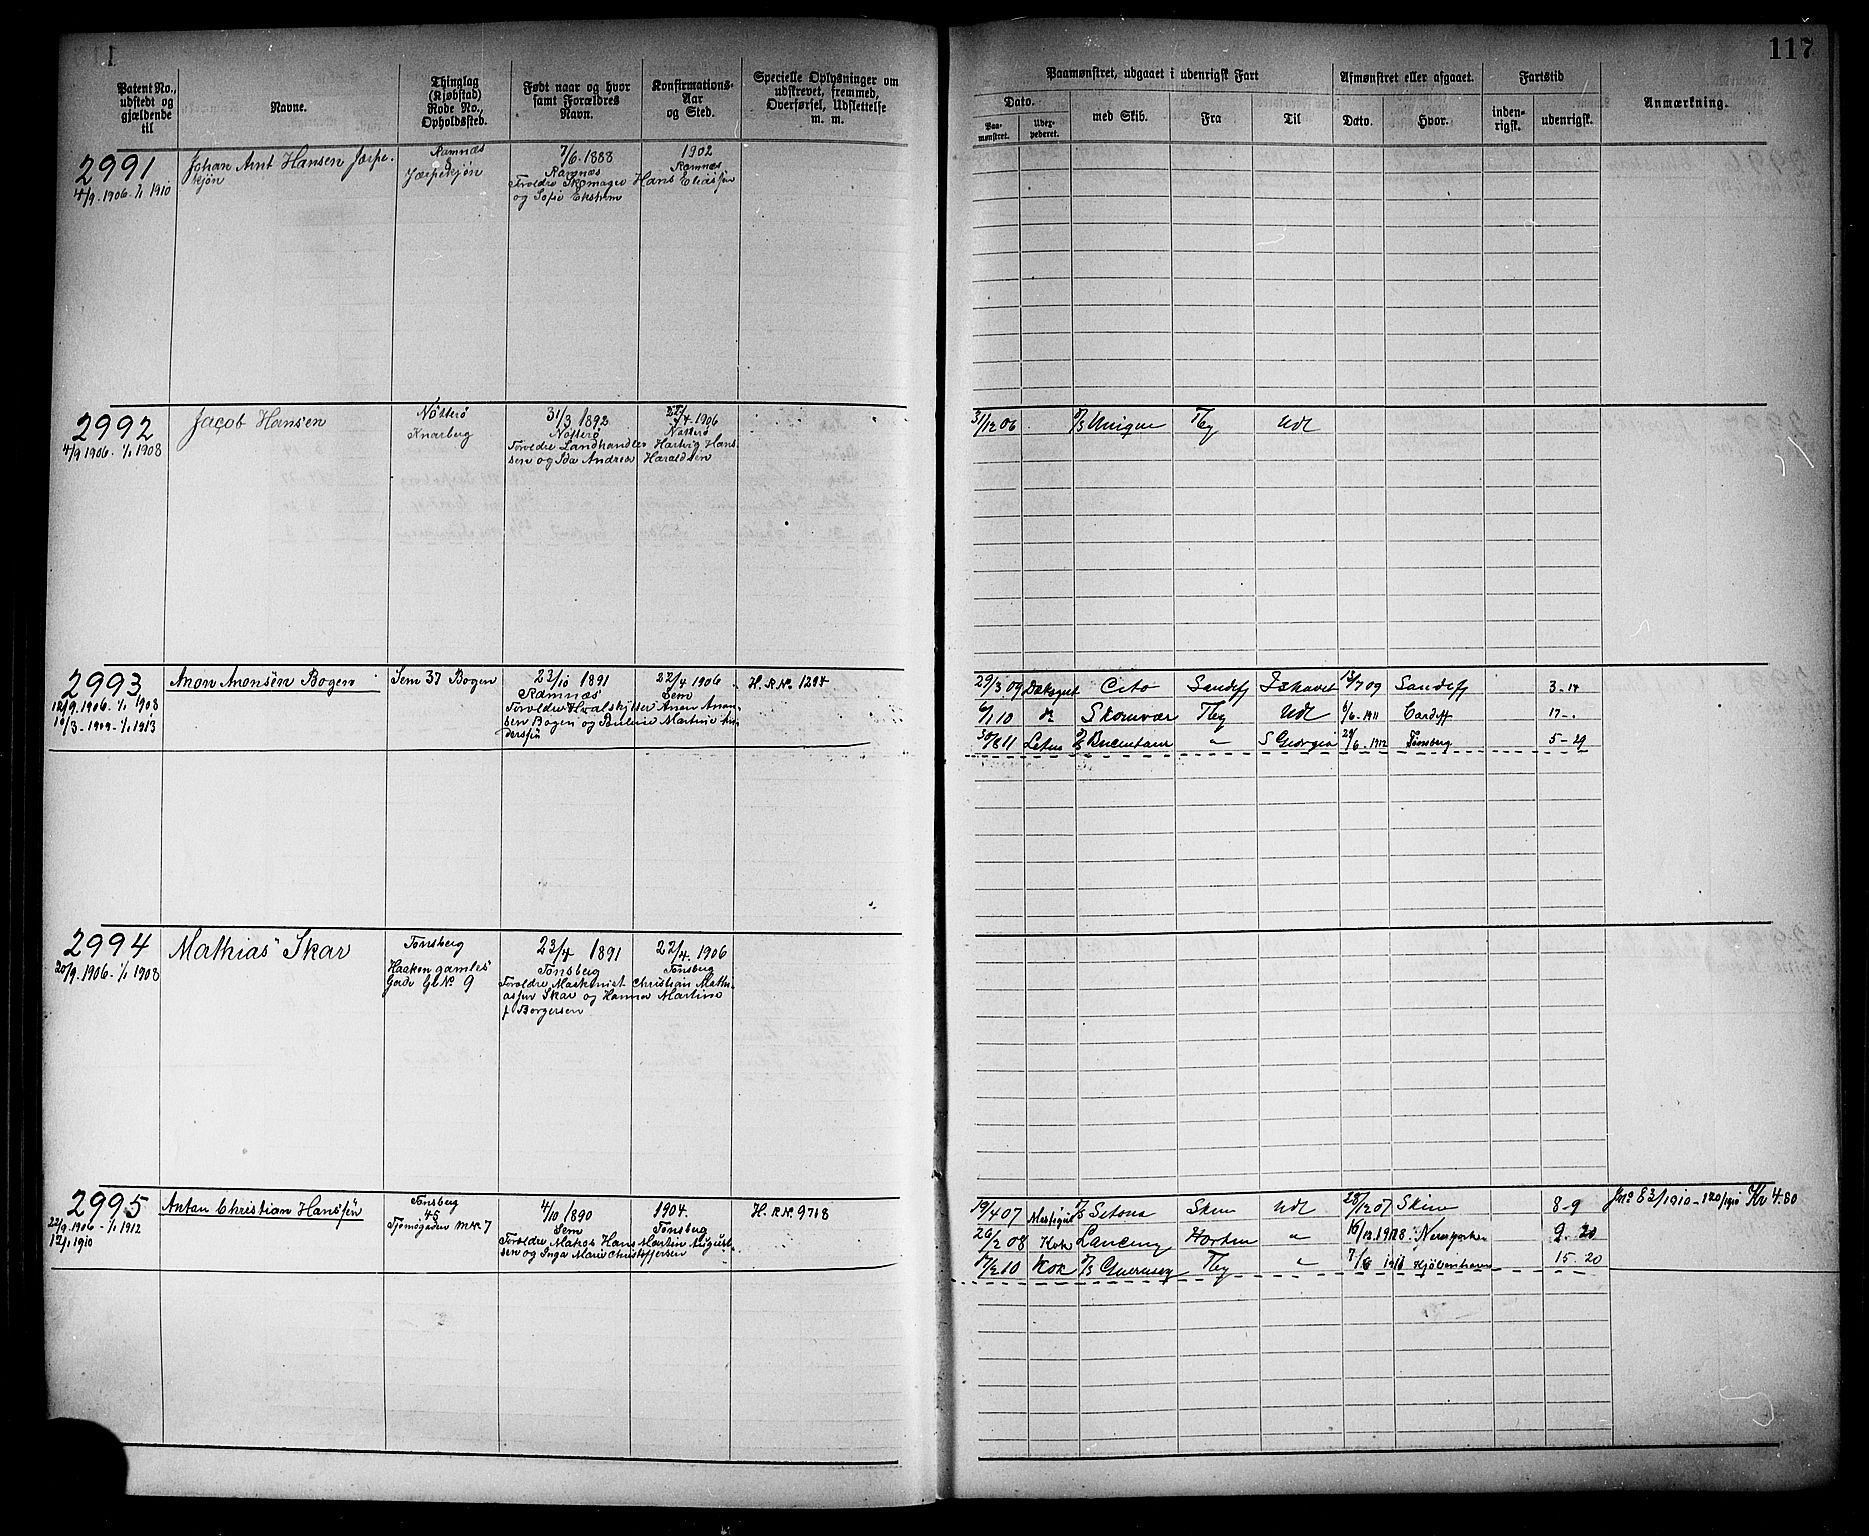 117
Patent No., udstedt og gjældende til
Navne.
Thinglag (Kjøbstad) Rode No., Opholdssted.
Født naar og hvor samt Forældres Navn.
Konfirmations-Aar og Sted.
Specielle Oplysninger om udskrevet, fremmed, Overførsel, Udslettelse m. m.
Paamønstret, udgaaet i udenrigsk Fart
Dato.
Paa-mønstret.
Udex-pederet.
med Skib.
Fra
Til
Afmønstret eller afgaaet.
Dato.
Hvor.
Fartstid
inden-rigsk.
udenrigsk.
Anmærkning.
2991
4/9. 1906. 1/1 1910
Johan Arnt Hansen Jærpe-
kjøn
Ramnæs
8
Jærpekjøn
7/6. 1888
Ramnæs
Forældre Skomager Hans Eliassen
og Sofie Ekstrem
1902
Ramnæs
2992
4/9 1906. 1/1 1908
Jacob Hansen
Nøtterø
Knarberg
31/3 1892
Nøtterø
Forældre Landhandler Hartvig Hans-
sen og Ida Andrea Haraldsen
22/4. 1906
Nøtterø
31/12 06 D/S Unique Tbg Udl
2993
12/9. 1906. 1/1 1908
10/3 - 1909 - 1/1 1913
Anon Anonsen Bogen
Sem 37 Bogen
23/10 1891
Ramnæs
Forældre Hvalskytter Anon Anon-
sen Bogen og Pauline Martine An-
derssen
22/4 1906
Sem
H. R. No. 1294
29/3 09 Dæksgut Cito Sandefj Ishavet 13/7 09 Sandefj 3-14
6/1 10 do Skomvær Tbg Udl 6/6-1911 Cardiff 17-.
30/8 11 Letm D/S Bucentaur " S Georgia 29/6-1912 Tønsberg 5-29
2994
20/9. 1906. 1/1 1908
Mathias Skar
Tønsberg
Haakon gamles
Gade Gl No 9
23/4 1891
Tønsberg
Forældre Maskinist Christian Mathi-
assen Skar og Hanna Martine
f Borgersen
22/4. 1906
Tønsberg
2995
22/9. 1906 - 1/1 1912
12/1 1910
Anton Christian Hanssen
Tønsberg
45
Tjømøgaden m No 7
4/10 1890
Sem
Forældre Matros Hans Martin August-
sen og Inga Marie Christoffersen
1904.
Tønsberg
H. R No. 9718
19/4 07 Messegut D/S Setona Skien Udl 28/12 07 Skien 8-9
26/2 08 Kok Lancing Horten " 16/12 1908. 9. 20
17/2 10 Kok D/S Guernsey Tbg " 7/6 1911 Kjøbenhavn 15-20
Jno 83/1910 - 120/1910 Kr 4.80